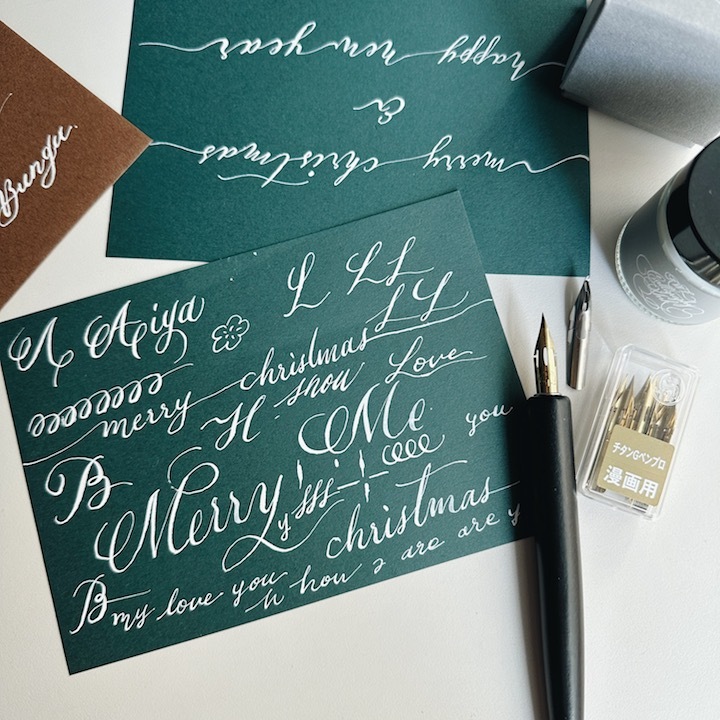 happy new year
&
merry christmas
Bungu.
A Aiya L LL
LL
merry christmas
H shou Love
Me you
B
Merry
y christmas
B my love you
h hou are are y
チタンGペンプロ
漫画用